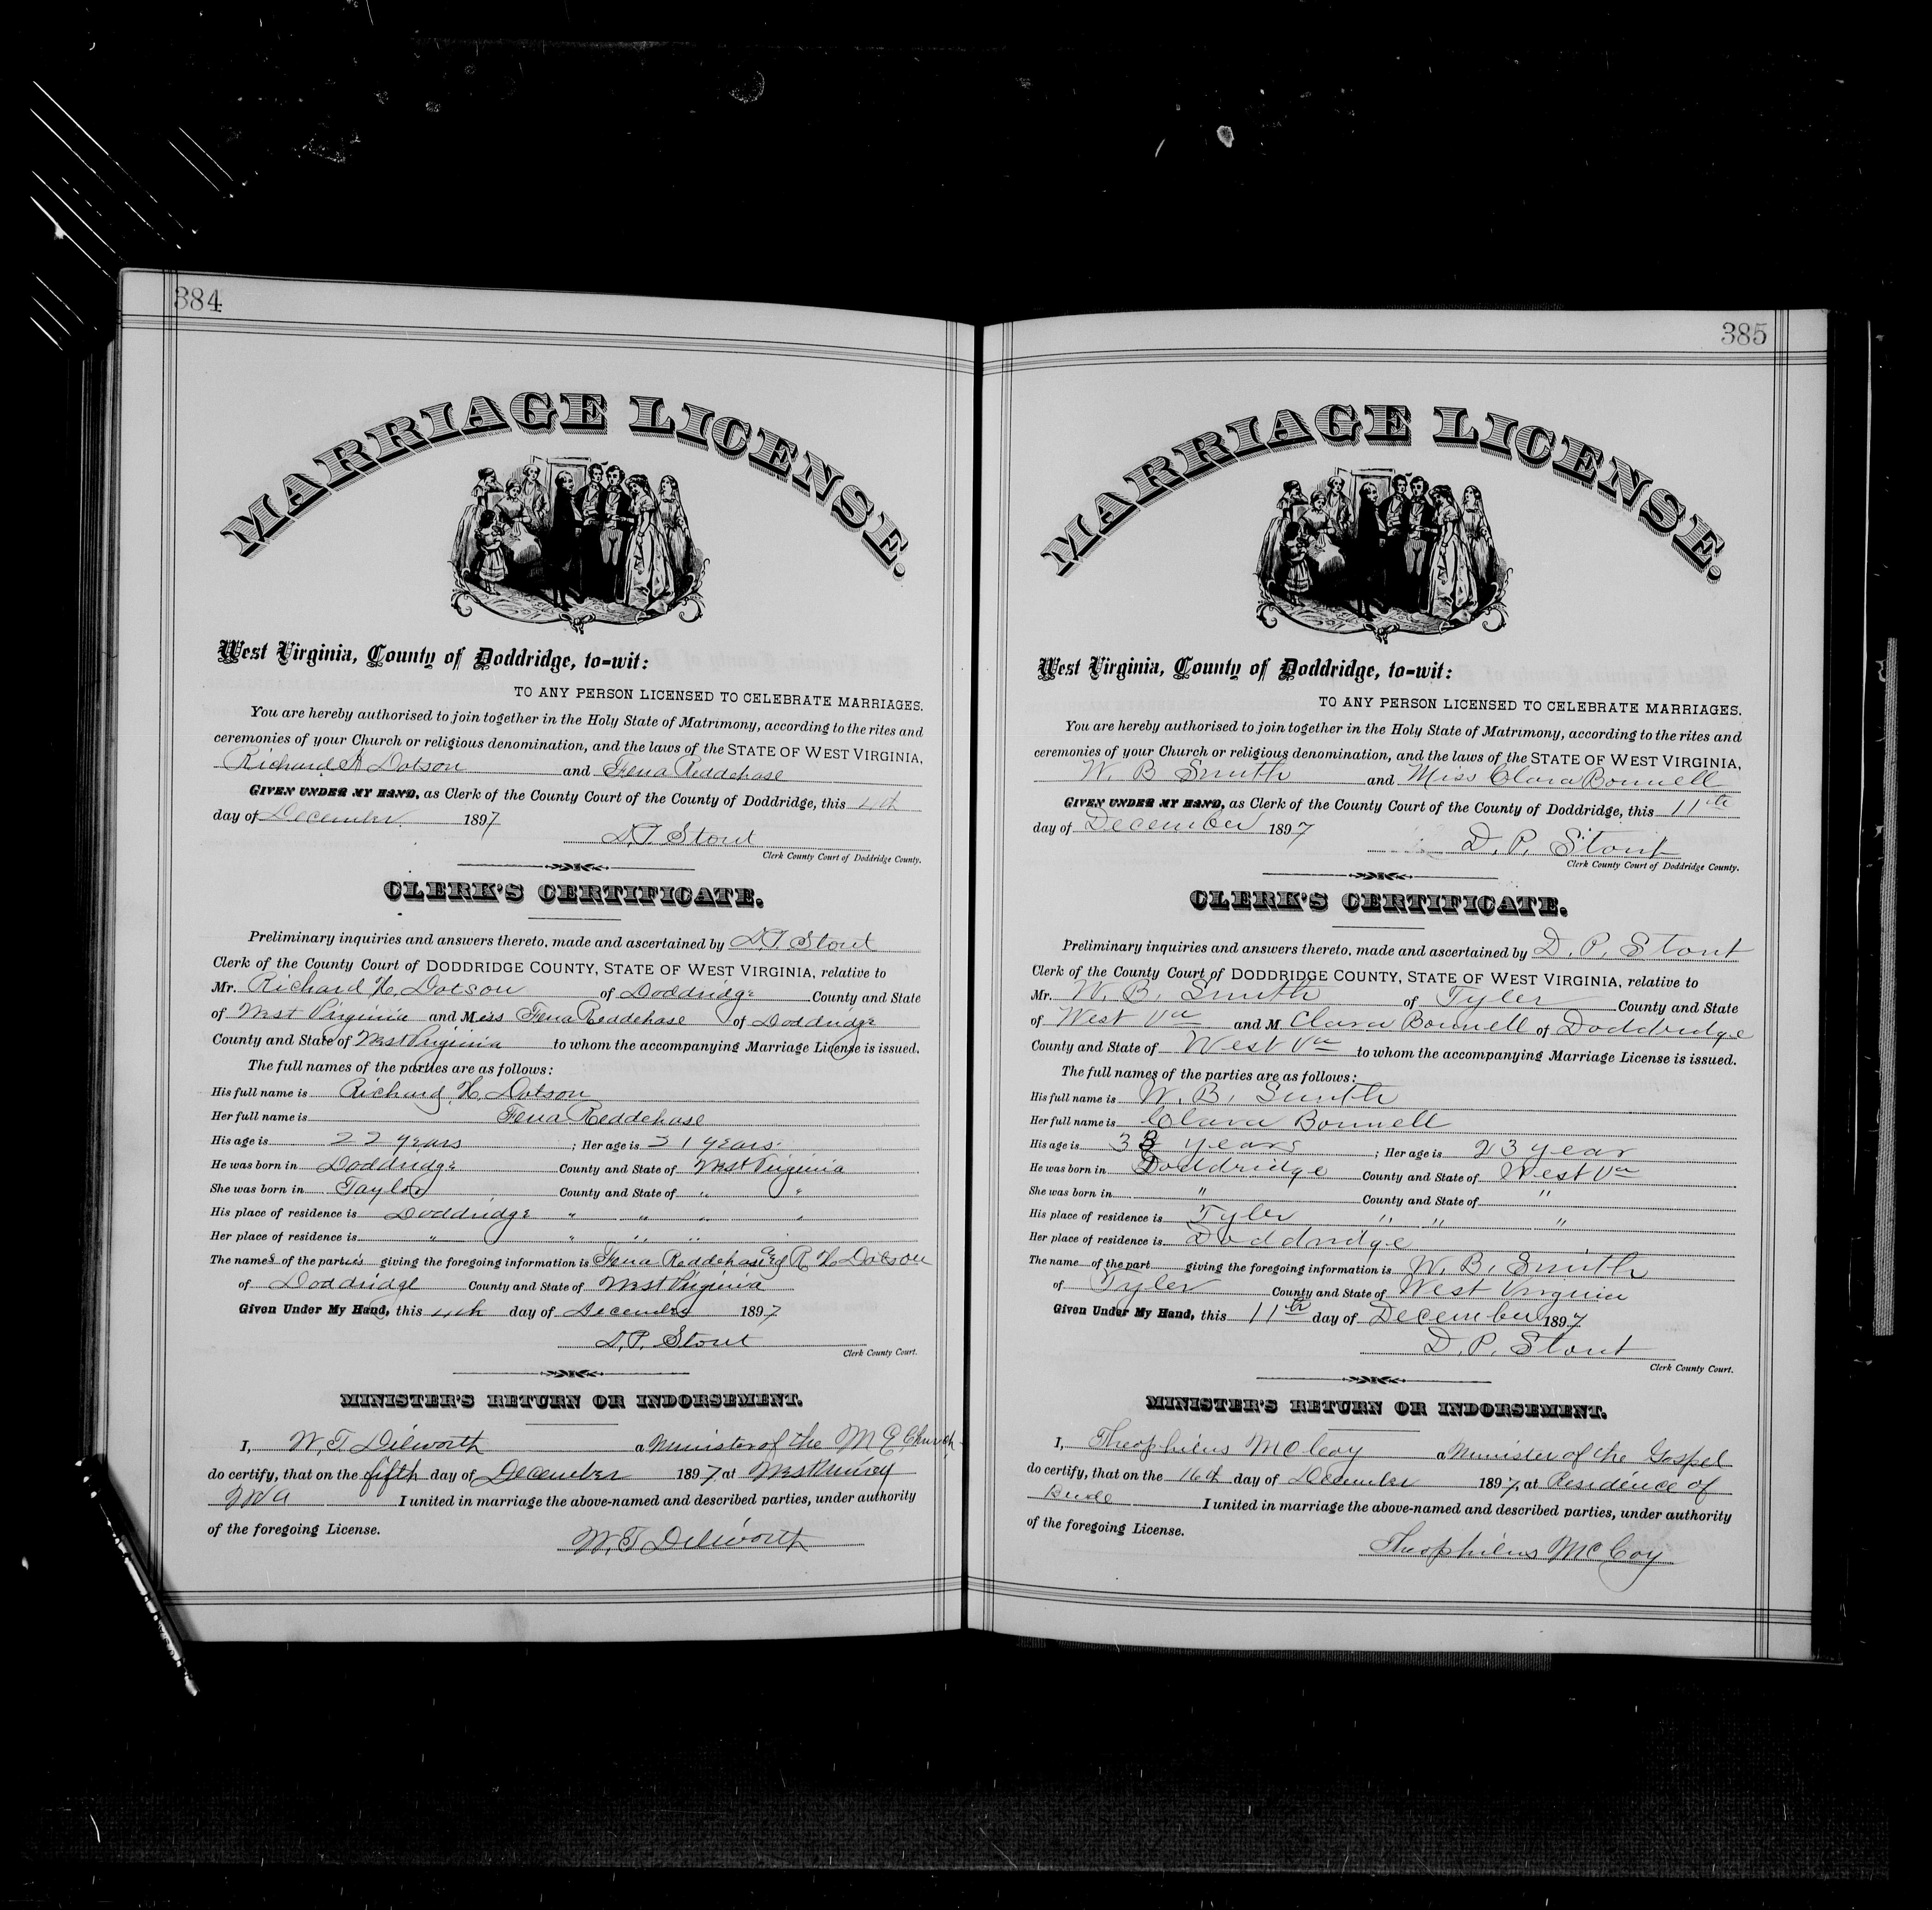 384
MARRIAGE LICENSE.
West Virginia, County of Doddridge, to-wit:
TO ANY PERSON LICENSED TO CELEBRATE MARRIAGES.
You are hereby authorised to join together in the Holy State of Matrimony, according to the rites and
ceremonies of your Church or religious denomination, and the laws of the STATE OF WEST VIRGINIA,
Richard H Dotson and Fena Reddehase
GIVEN UNDER MY HAND, as Clerk of the County Court of the County of Doddridge, this 4th
day of December 1897
D.P. Stout
Clerk County Court of Doddridge County.
CLERK'S CERTIFICATE.
Preliminary inquiries and answers thereto, made and ascertained by D.P. Stout
Clerk of the County Court of DODDRIDGE COUNTY, STATE OF WEST VIRGINIA, relative to
Mr. Richard H. Dotson of Doddridge County and State
of West Virginia and Miss Fena Reddehase of Doddridge
County and State of West Virginia to whom the accompanying Marriage License is issued.
The full names of the parties are as follows:
His full name is Richard H. Dotson
Her full name is Fena Reddehase
His age is 22 years ; Her age is 21 years.
He was born in Doddridge County and State of West Virginia
She was born in Taylor County and State of " "
His place of residence is Doddridge " " " "
Her place of residence is " " " "
The names of the parties giving the foregoing information is Fena Reddehase and R. H. Dotson
of Doddridge County and State of West Virginia
Given Under My Hand, this 4th day of December 1897
D.P. Stout
Clerk County Court.
MINISTER'S RETURN OR INDORSEMENT.
I, W. T. Dilworth a Minister of the M E Church
do certify, that on the fifth day of December 1897, at West Union
W Va I united in marriage the above-named and described parties, under authority
of the foregoing License.
W. T. Dilworth
385
MARRIAGE LICENSE.
West Virginia, County of Doddridge, to-wit:
TO ANY PERSON LICENSED TO CELEBRATE MARRIAGES.
You are hereby authorised to join together in the Holy State of Matrimony, according to the rites and
ceremonies of your Church or religious denomination, and the laws of the STATE OF WEST VIRGINIA,
W. B Smith and Miss Clara Bonnell
GIVEN UNDER MY HAND, as Clerk of the County Court of the County of Doddridge, this 11th
day of December 1897
D. P. Stout
Clerk County Court of Doddridge County.
CLERK'S CERTIFICATE.
Preliminary inquiries and answers thereto, made and ascertained by D. P. Stout
Clerk of the County Court of DODDRIDGE COUNTY, STATE OF WEST VIRGINIA, relative to
Mr. W. B. Smith of Tyler County and State
of West Va and M Clara Bonnell of Doddridge
County and State of West Va to whom the accompanying Marriage License is issued.
The full names of the parties are as follows:
His full name is W. B. Smith
Her full name is Clara Bonnell
His age is 33 years ; Her age is 23 year
He was born in Doddridge County and State of West Va
She was born in " County and State of "
His place of residence is Tyler " " "
Her place of residence is Doddridge
The name of the part giving the foregoing information is W. B. Smith
of Tyler County and State of West Virginia
Given Under My Hand, this 11th day of December 1897
D. P. Stout
Clerk County Court.
MINISTER'S RETURN OR INDORSEMENT.
I, Theophilus McCoy a Minister of the Gospel
do certify, that on the 16th day of December 1897, at Residence of
Bride I united in marriage the above-named and described parties, under authority
of the foregoing License.
Theophilus McCoy